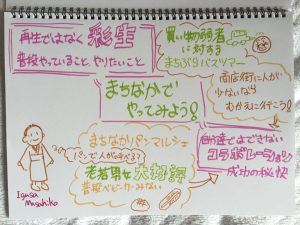 再生ではなく 彩生
普段やっていること やりたいこと
買い物弱者に対する
まちぶらバスツアー
まちなかで
やってみよう!
商店街に人が
少ないなら
むかえに行こう!
まちなかパンマルシェ
パンで人がよべる?
老若男女 大好評
普段ベビーカーみない
自分達でよできない
コラボレーション
成功の秘快
Igasa
Masahiko